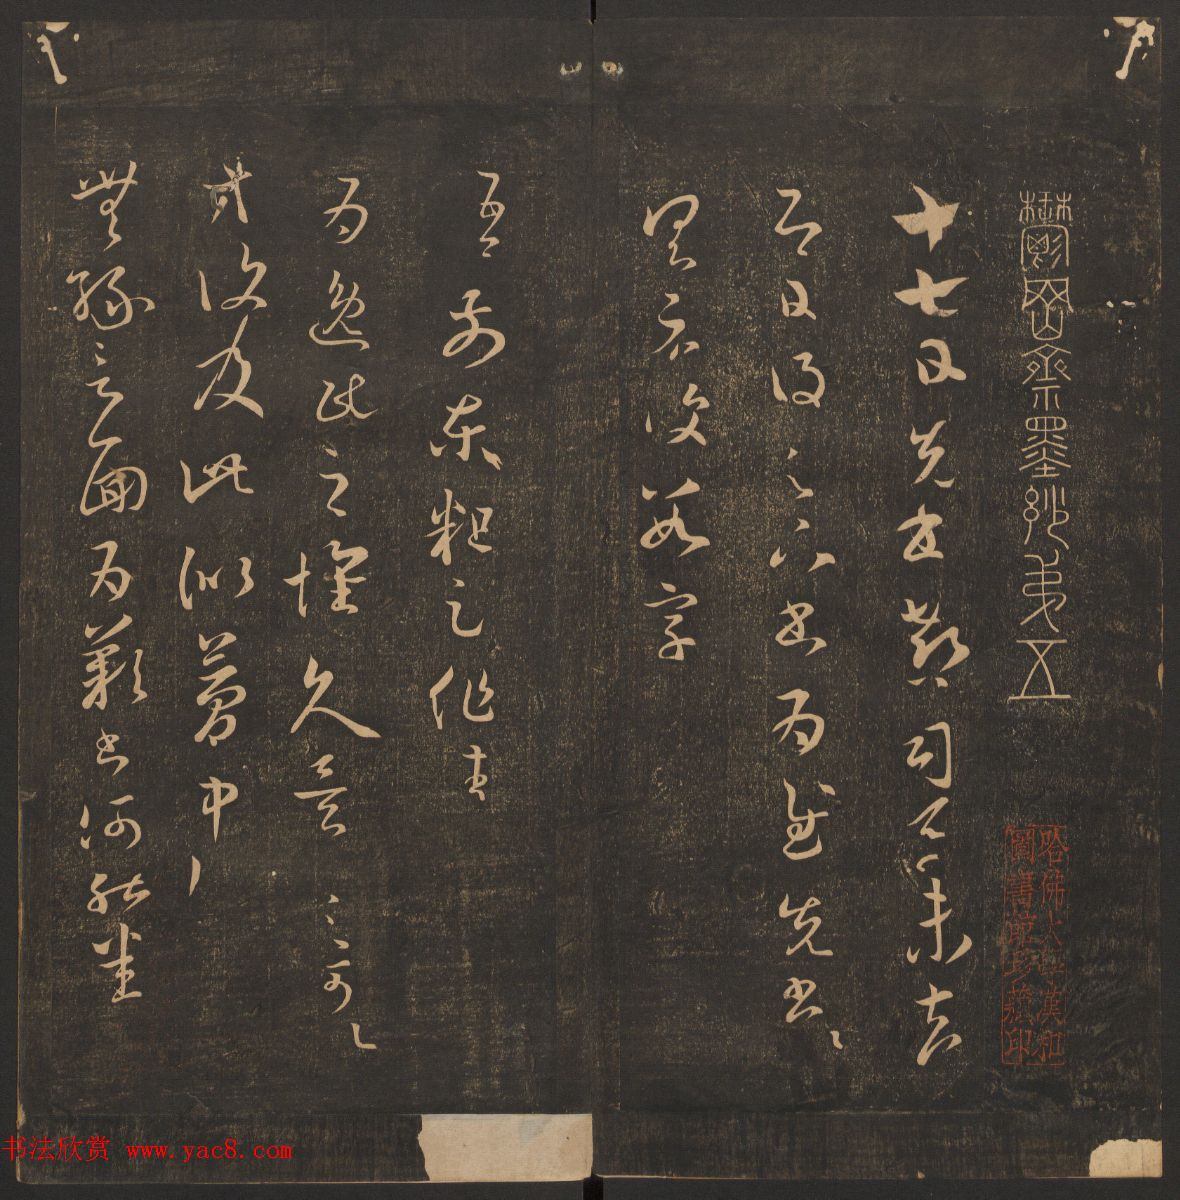 鬱岡齋墨妙弟五
哈佛大學漢和
圖書館珍藏印
十七日先書郗司馬未去
即日得足下書為慰先書以
具示復數字
吾前東粗足作佳
為逸民之懷久矣足下何以
等復及此似夢中
無緣言面為歎書何能悉
书法欣赏 www.yac8.com